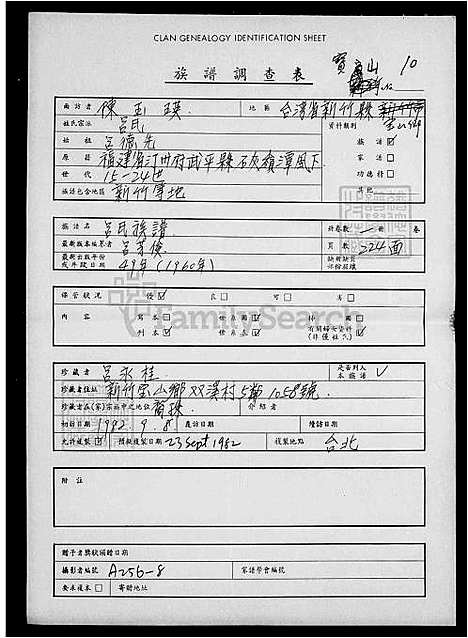 CLAN GENEALOGY IDENTIFICATION SHEET
族譜調查表
寶山 10
面訪者 陳玉瑛 地區 台灣省新竹縣
寶山鄉
姓氏宗派 呂氏 資料類別
始祖 呂德先 族譜
原籍 福建省汀州府武平縣 家譜
世代 15-24世 功德特
族譜包含地區 新竹等地 其他
族譜名 呂氏族譜 冊卷數 一冊 卷
最新版本編纂者 呂芳
最新出版年份或年齡日期 49年(1960年) 頁數 224面
保管狀況 優 良 可 劣
內容 寫本 世系圖
刊本 世系表 有關婦女資料
珍藏者 呂永桂 是否列入本族譜
珍藏者住址 新竹寶山鄉双溪村5鄰1058號
珍藏者在(家)宗派中之地位 裔孫 介紹者
初訪日期 1982. 9. 8 複訪日期 續訪日期
允許複製 預擬複製日期 23 Sept 1982 複製地點 台北
附註
贈予者獎狀頒贈日期
攝影者編號 A256-8 家譜學會編號
要求複本 寄贈地址
FamilySearch